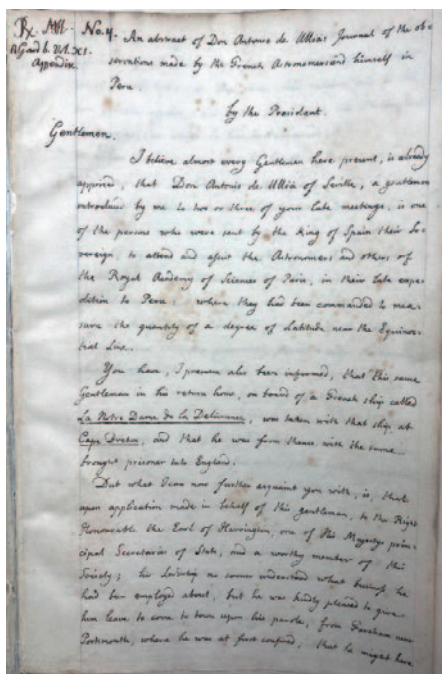 No. 4. An abstract of Don Antonio de Ulloa's Journal of the ob-
servations made by the French Astronomers and himself in
Peru.
Appendix.
by the President.
Gentlemen.
I believe almost every Gentleman here present, is already
apprised, that Don Antonio de Ulloa of Seville, a gentleman
introduced by me to two or three of your late meetings, is one
of the persons who were sent by the King of Spain their So-
vereign, to attend and assist the Astronomers and others of
the Royal Academy of Sciences of Paris, in their late expe-
dition to Peru: where they had been commanded to mea-
sure the quantity of a degree of Latitude near the Equinoc-
tial Line.
You have, I presume also been informed, that this same
Gentleman in his return home, on board of a French ship called
La Notre Dame de la Deliverance, was taken with that ship, at
Cape Breton, and that he was from thence with the same
brought prisoner into England.
But what I can now further acquaint you with, is, that
upon application made in behalf of this gentleman, to the Right
Honourable the Earl of Harrington, one of His Majestys prin-
cipal Secretaries of State, and a worthy member of this
Society; his Lordship no sooner understood what business he
had been employed about, but he was kindly pleased to give
him leave to come to town upon his parole, from Fareham near
Portsmouth, where he was at first confined, that he might here